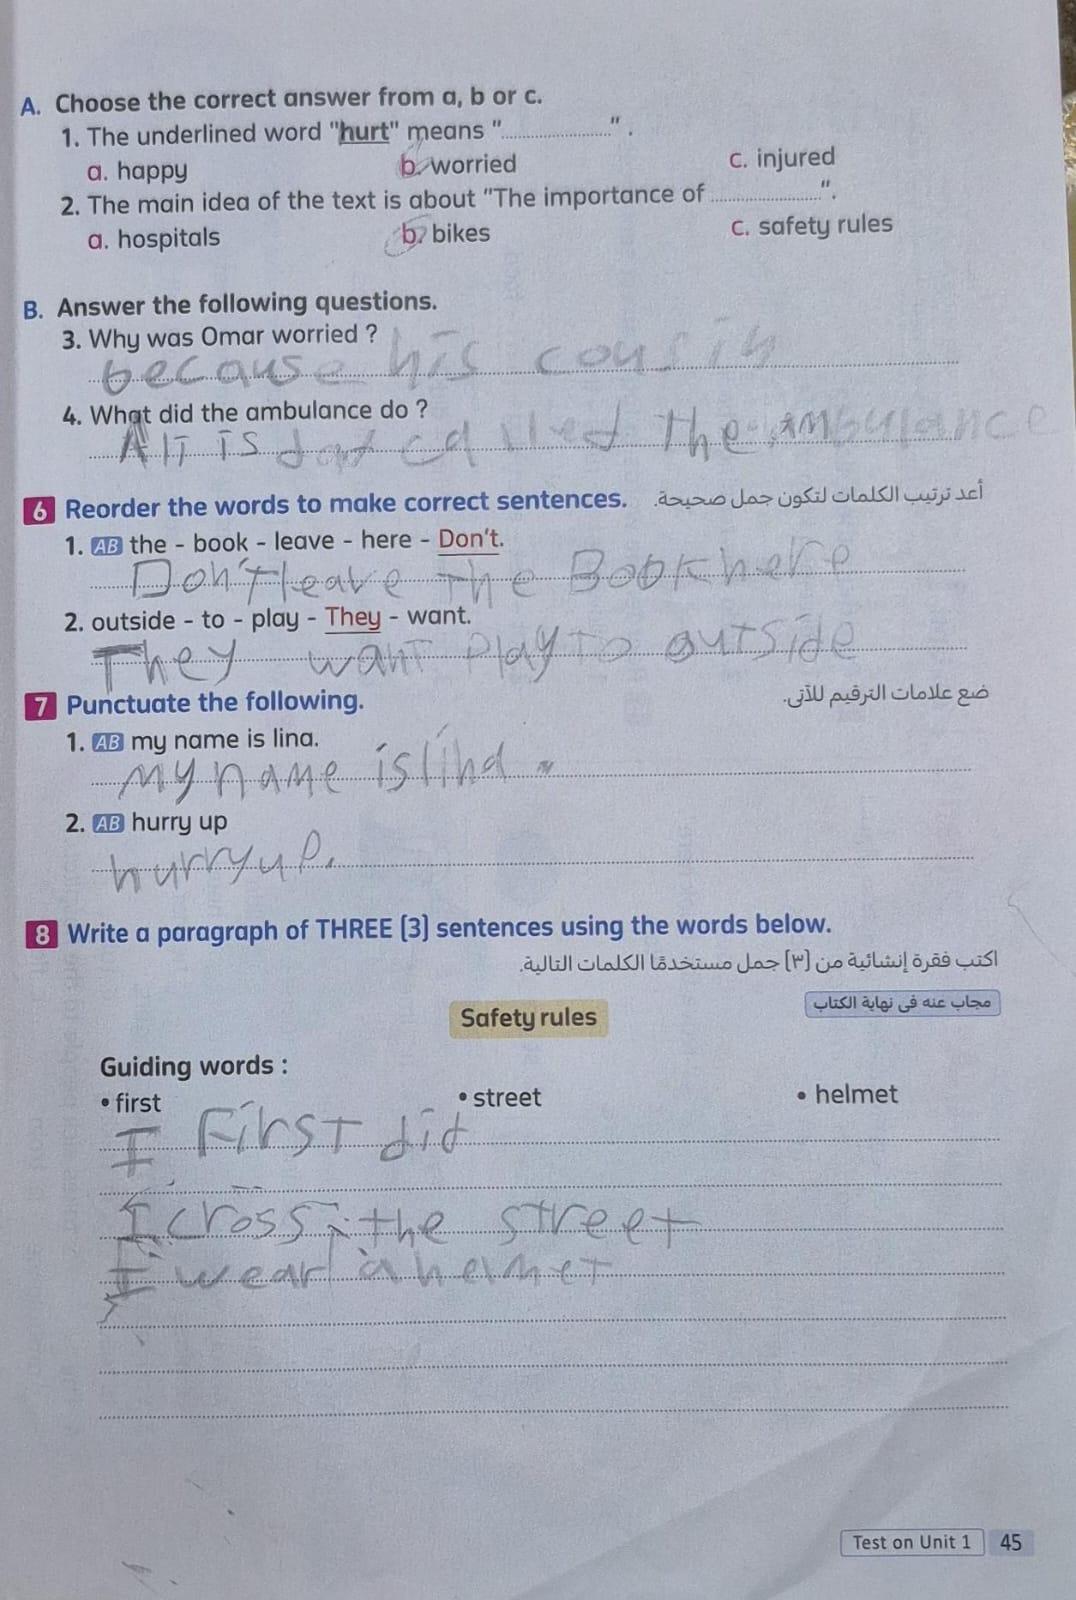 A. Choose the correct answer from a, b or c.
1. The underlined word "hurt" means "....................".
a. happy b. worried c. injured
2. The main idea of the text is about "The importance of ....................".
a. hospitals b. bikes c. safety rules
B. Answer the following questions.
3. Why was Omar worried ?
because his cousin
4. What did the ambulance do ?
Ali is dat called the ambulance
6 Reorder the words to make correct sentences. أعد ترتيب الكلمات لتكون جمل صحيحة.
1. AB the - book - leave - here - Don't.
Don't leave The Book here
2. outside - to - play - They - want.
They want Play To outside
7 Punctuate the following. ضع علامات الترقيم للآتى.
1. AB my name is lina.
my name is lina .
2. AB hurry up
hurry up.
8 Write a paragraph of THREE (3) sentences using the words below.
اكتب فقرة إنشائية من (٣) جمل مستخدمًا الكلمات التالية.
مجاب عنه فى نهاية الكتاب
Safety rules
Guiding words :
• first • street • helmet
I First did
I cross the street
I wear a helmet
Test on Unit 1 45